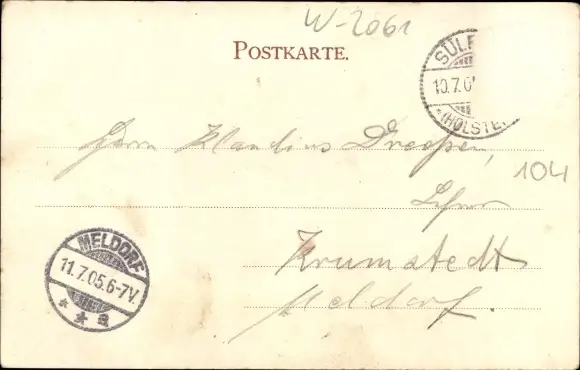 W-2061
POSTKARTE.
SÜL
10.7.0
(HOLSTE
Herrn Klaudius Dreessen,
104
Krumstedt
Meldorf.
MELDORF
11.7.05.6-7V.
* * a